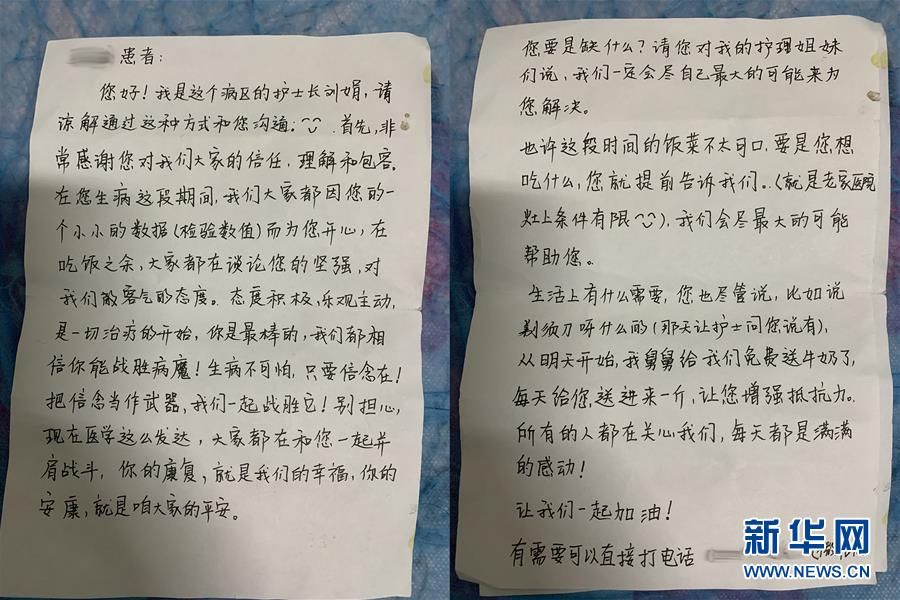 患者:
您好!我是这个病区的护士长刘娟,请
谅解通过这种方式和您沟通。首先,非
常感谢您对我们大家的信任,理解和包容。
在您生病这段期间,我们大家都因您的一
个小小的数据(检验数值)而为您开心,在
吃饭之余,大家都在谈论您的坚强,对
我们的客气的态度。态度积极,乐观主动,
是一切治疗的开始,你是最棒的,我们都相
信你能战胜病魔!生病不可怕,只要信念在!
把信念当作武器,我们一起战胜它!别担心,
现在医学这么发达,大家都在和您一起并
肩战斗,你的康复、就是我们的幸福,你的
安康,就是咱大家的平安。
您要是缺什么?请您对我的护理姐妹
们说,我们一定会尽自己最大的可能来为
您解决。
也许这段时间的饭菜不太可口,要是您想
吃什么,您就提前告诉我们。(就是老家医院
灶上条件有限),我们会尽最大的可能
帮助您。
生活上有什么需要,您也尽管说,比如说
剃须刀呀什么的(那天让护士问您说有),
从明天开始,我舅舅给我们免费送牛奶了,
每天给您送进来一斤,让您增强抵抗力。
所有的人都在关心我们,每天都是满满
的感动!
让我们一起加油!
有需要可以直接打电话
新华网
WWW.NEWS.CN